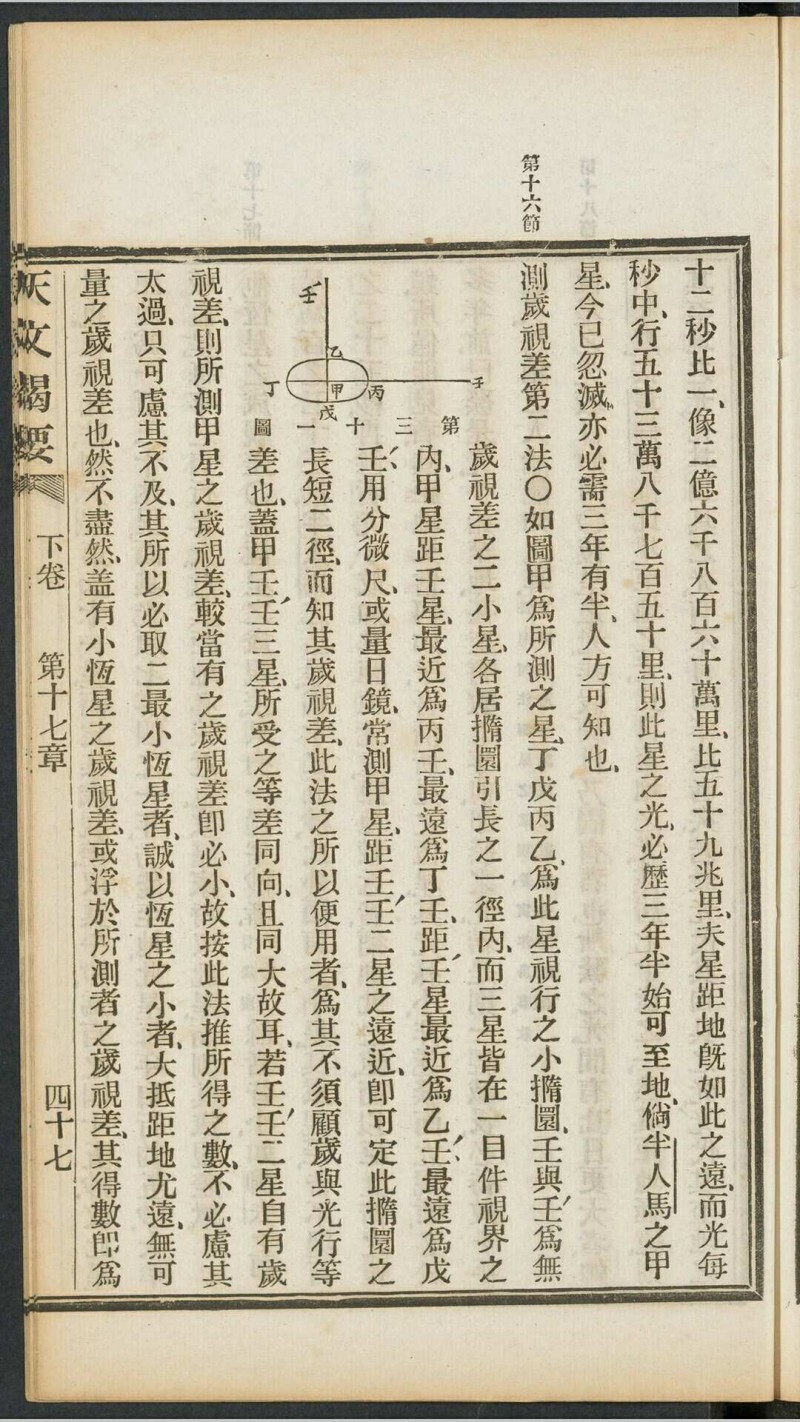 第十六節
十二秒比一、像二億六千八百六十萬里、比五十九兆里、夫星距地旣如此之遠、而光每
秒中、行五十三萬八千七百五十里、則此星之光、必歷三年半始可至地、倘半人馬之甲
星、今已忽滅、亦必需三年有半、人方可知也、
測歲視差第二法〇如圖甲爲所測之星、丁戊丙乙、爲此星視行之小撱圜、壬與壬′爲無
歲視差之二小星、各居撱圜引長之一徑內、而三星皆在一目件視界之
內、甲星距壬星、最近爲丙壬、最遠爲丁壬、距壬′星最近爲乙壬′、最遠爲戊
壬′、用分微尺、或量日鏡、常測甲星、距壬、壬′二星之遠近、卽可定此撱圜之
長短二徑、而知其歲視差、此法之所以便用者、爲其不須顧歲與光行等
差也、蓋甲壬、壬′三星、所受之等差同向、且同大故耳、若壬、壬′二星自有歲
視差、則所測甲星之歲視差、較當有之歲視差卽必小、故按此法推所得之數、不必慮其
太過、只可慮其不及、其所以必取二最小恆星者、誠以恆星之小者、大抵距地尤遠、無可
量之歲視差也、然不盡然、盖有小恆星之歲視差、或浮於所測者之歲視差、其得數卽爲
壬′
乙
丁
甲
丙
壬
戊
第三十一圖
天文揭要
下卷
第十七章
四十七